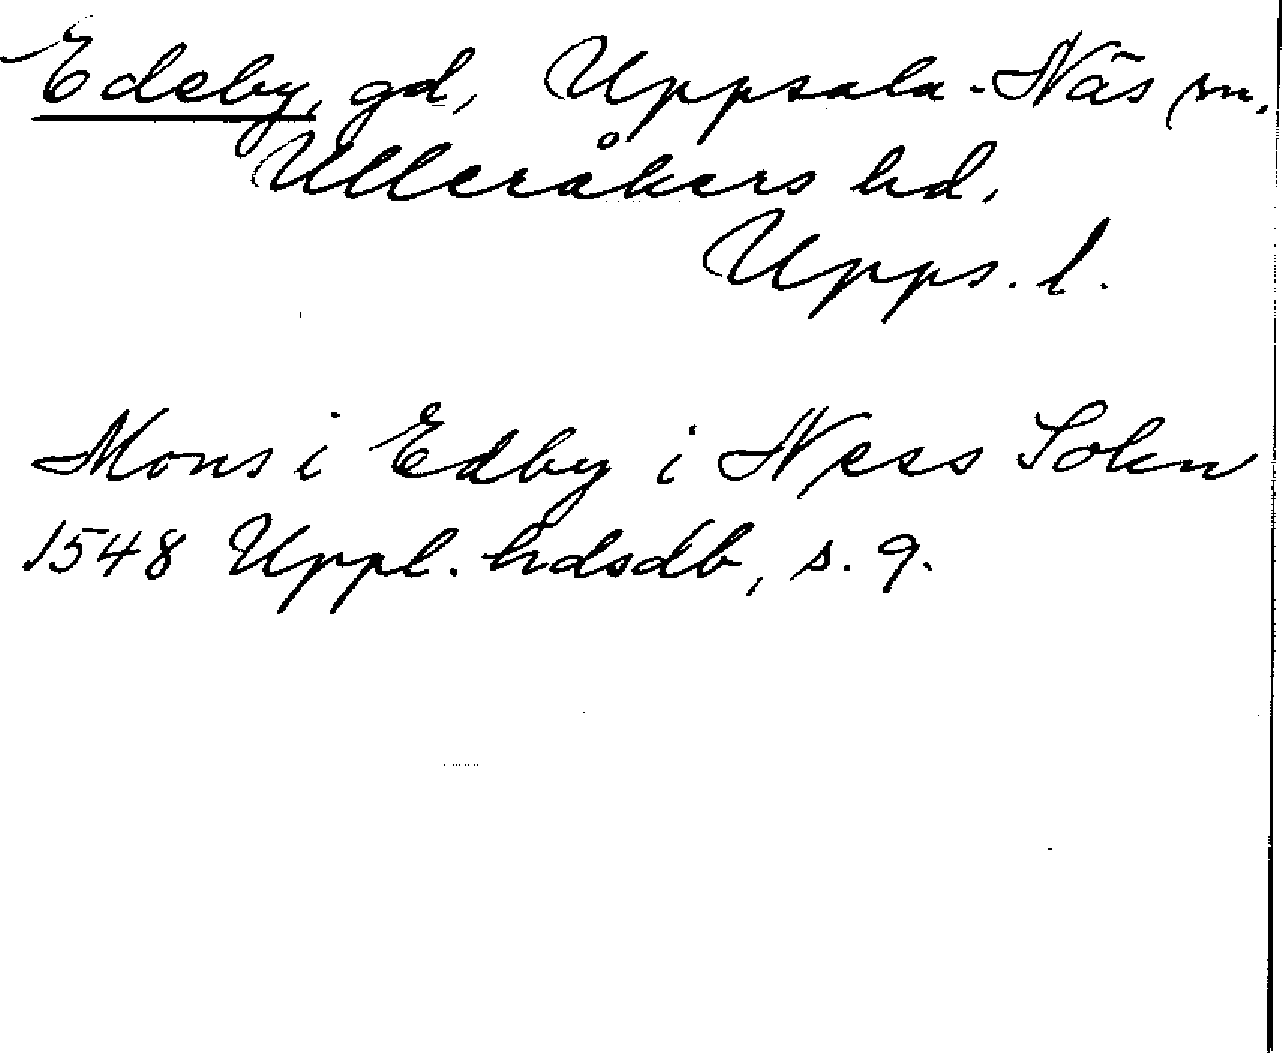 Edeby, gd, Uppsala-Näs sn.
Ulleråkers hd.
Upps. l.
Mons i Edby i Ness Sokn
1548 Uppl. hdsdb, s. 9.